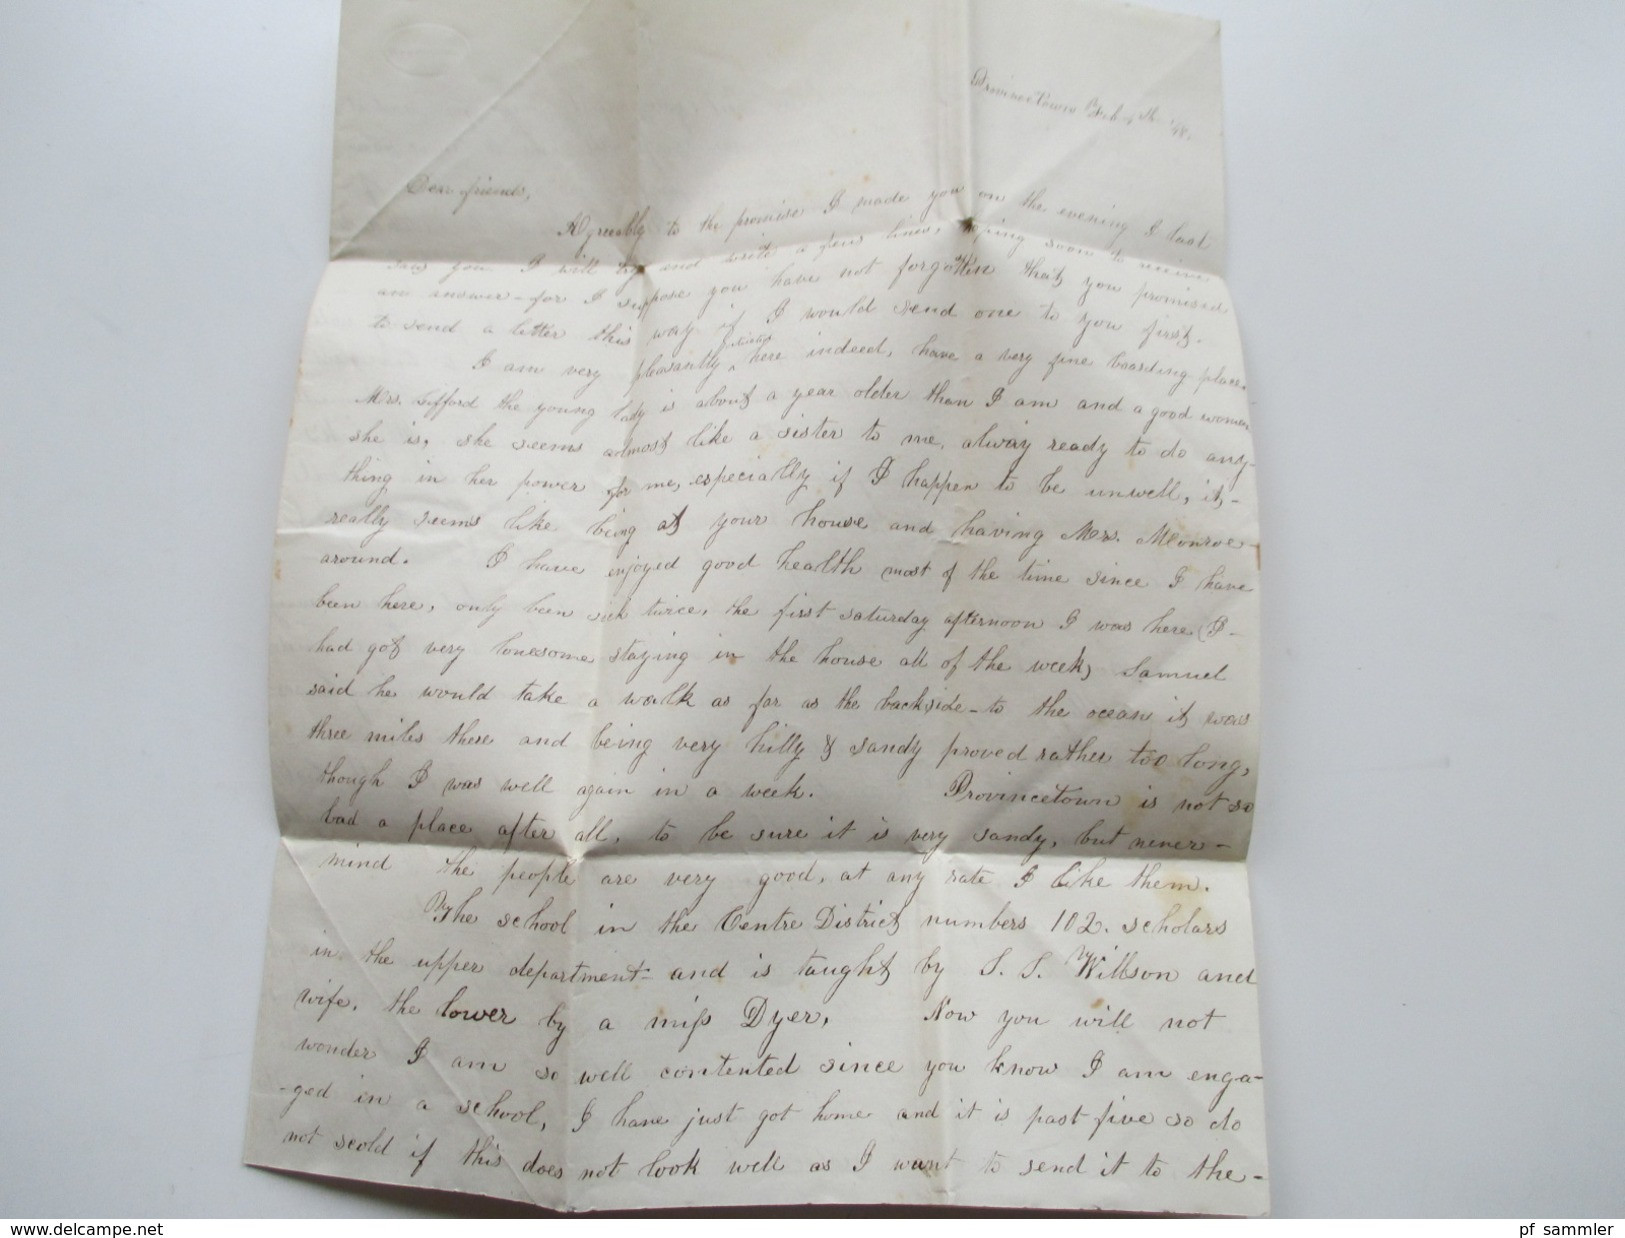 Provincetown Feb 4th /48.
Dear friends,
Agreeably to the promise I made you on the evening I last
saw you I will try and write a few lines, hoping soon to receive
an answer - for I suppose you have not forgotten that you promised
to send a letter this way if I would send one to you first.
I am very pleasantly here indeed, have a very fine boarding place.
Mrs. Gifford the young lady is about a year older than I am and a good woman
she is, she seems almost like a sister to me, alway ready to do any-
thing in her power for me, especially if I happen to be unwell, it -
really seems like being at your house and having Mrs. Monroe -
around. I have enjoyed good health most of the time since I have
been here, only been sick twice, the first saturday afternoon I was here (I -
had got very lonesome staying in the house all of the week) Samuel
said he would take a walk as far as the backside - to the ocean it was
three miles there and being very hilly & sandy proved rather too long,
though I was well again in a week. Provincetown is not so
bad a place after all, to be sure it is very sandy, but never -
mind the people are very good, at any rate I like them.
The school in the Centre District numbers 102. scholars
in the upper department - and is taught by S. S. Willson and
wife, the lower by a miss Dyer, Now you will not
wonder I am so well contented since you know I am enga-
-ged in a school, I have just got home and it is past five so do
not scold if this does not look well as I want to send it to the -
www.delcampe.net
pf sammler